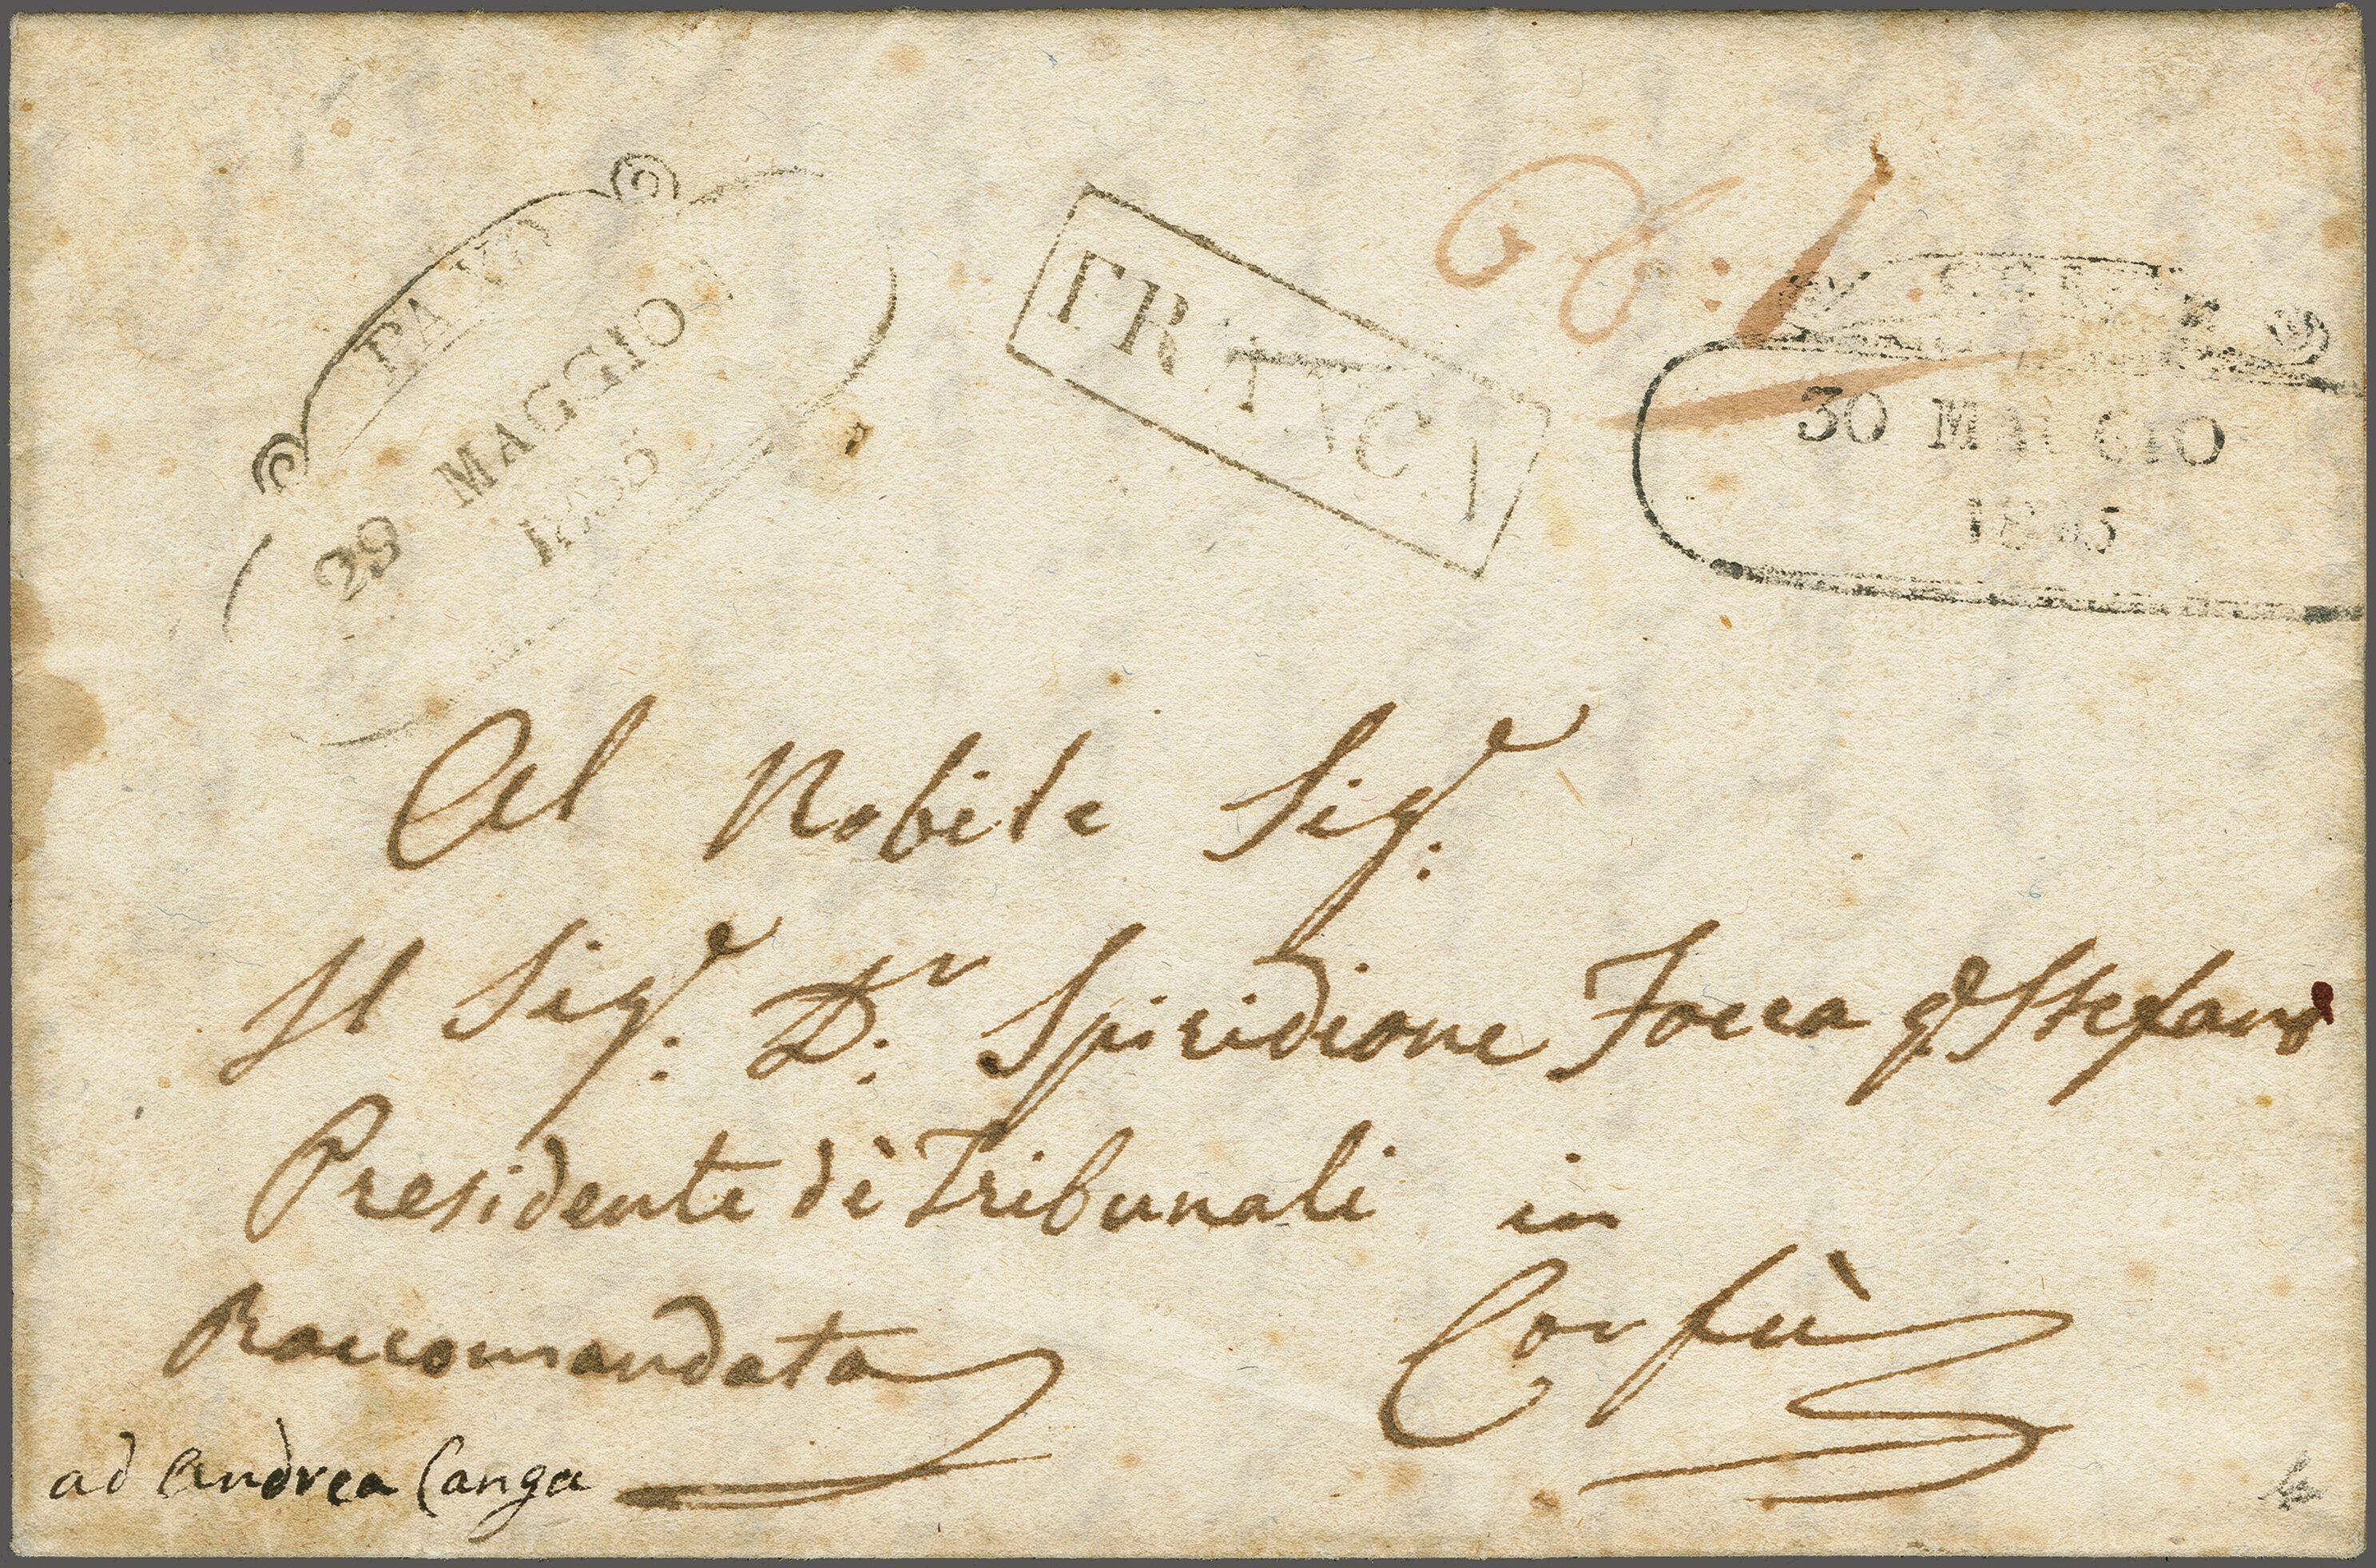 PAXO
29 MAGGIO
FRANCA
30 MAGGIO
Al Nobile Sig.e
Il Sig.e Dr. Spiridione Focca q.m Stefano
Presidente dè Tribunali in
Corfù
Raccomandata
ad Andrea Canga